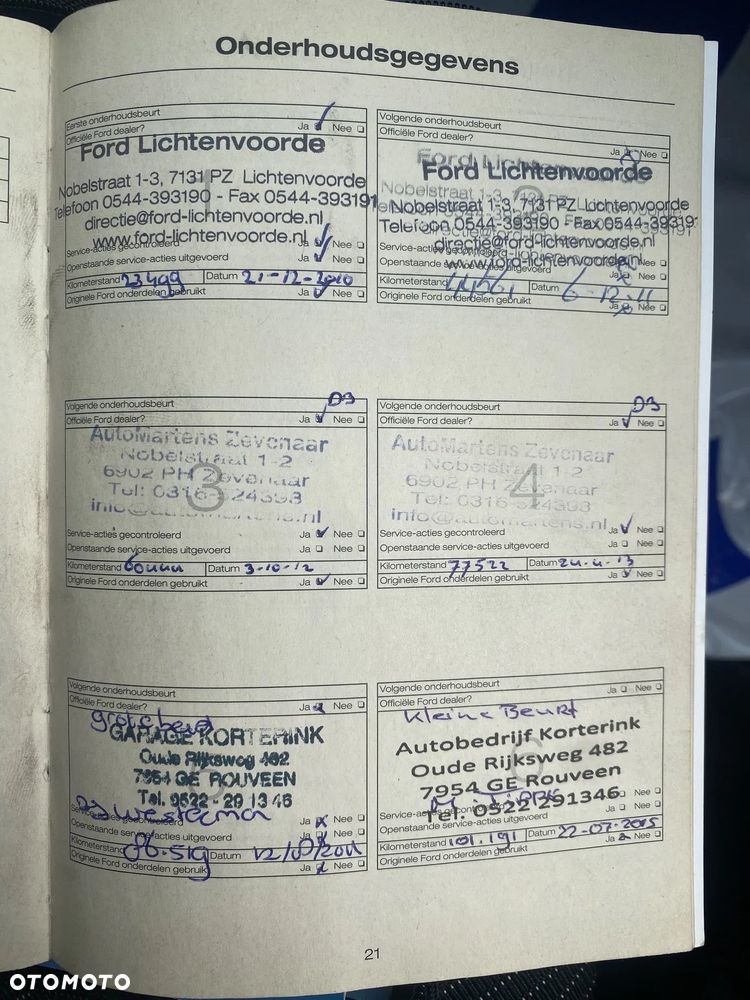 Onderhoudsgegevens
Eerste onderhoudsbeurt
Officiële Ford dealer? Ja Nee
Ford Lichtenvoorde
Nobelstraat 1-3, 7131 PZ Lichtenvoorde
Telefoon 0544-393190 - Fax 0544-393191
directie@ford-lichtenvoorde.nl
www.ford-lichtenvoorde.nl
Service-acties gecontroleerd Ja Nee
Openstaande service-acties uitgevoerd Ja Nee
Kilometerstand 23499 Datum 21-12-2010
Originele Ford onderdelen gebruikt Ja Nee
Volgende onderhoudsbeurt
Officiële Ford dealer? Ja Nee
Ford Lichtenvoorde
Nobelstraat 1-3, 7131 PZ Lichtenvoorde
Telefoon 0544-393190 - Fax 0544-39319
directie@ford-lichtenvoorde.nl
www.ford-lichtenvoorde.nl
Service-acties Nee
Openstaande service-acties uitgevoerd Ja Nee
Kilometerstand Datum 6-12-11
Originele Ford onderdelen gebruikt Ja Nee
Volgende onderhoudsbeurt D3
Officiële Ford dealer? Ja Nee
AutoMartens Zevenaar
Nobelstraat 1-2
6902 PH Zevenaar
3
Tel: 0316-524393
info@automartens.nl
Service-acties gecontroleerd Ja Nee
Openstaande service-acties uitgevoerd Ja Nee
Kilometerstand Datum 3-10-12
Originele Ford onderdelen gebruikt Ja Nee
Volgende onderhoudsbeurt D3
Officiële Ford dealer? Ja Nee
AutoMartens Zevenaar
Nobelstraat 1-2
6902 PH Zevenaar
4
Tel: 0316-524393
info@automartens.nl
Service-acties gecontroleerd Ja Nee
Openstaande service-acties uitgevoerd Ja Nee
Kilometerstand 77522 Datum 24-4-13
Originele Ford onderdelen gebruikt Ja Nee
Volgende onderhoudsbeurt
Officiële Ford dealer? Ja Nee
grote beurt
GARAGE KORTERINK
Oude Rijksweg 482
7954 GE ROUVEEN
Tel. 0522 - 29 13 46
Service-acties gecontroleerd Ja Nee
Openstaande service-acties uitgevoerd Ja Nee
Kilometerstand Datum
Originele Ford onderdelen gebruikt Ja Nee
Volgende onderhoudsbeurt Ja Nee
Officiële Ford dealer?
Kleine Beurt
Autobedrijf Korterink
Oude Rijksweg 482
7954 GE Rouveen
Tel. 0522 291346
Service-acties Ja Nee
Openstaande service-acties uitgevoerd Ja Nee
Kilometerstand 101.191 Datum 22-07-2015
Originele Ford onderdelen gebruikt Ja Nee
21
OTOMOTO